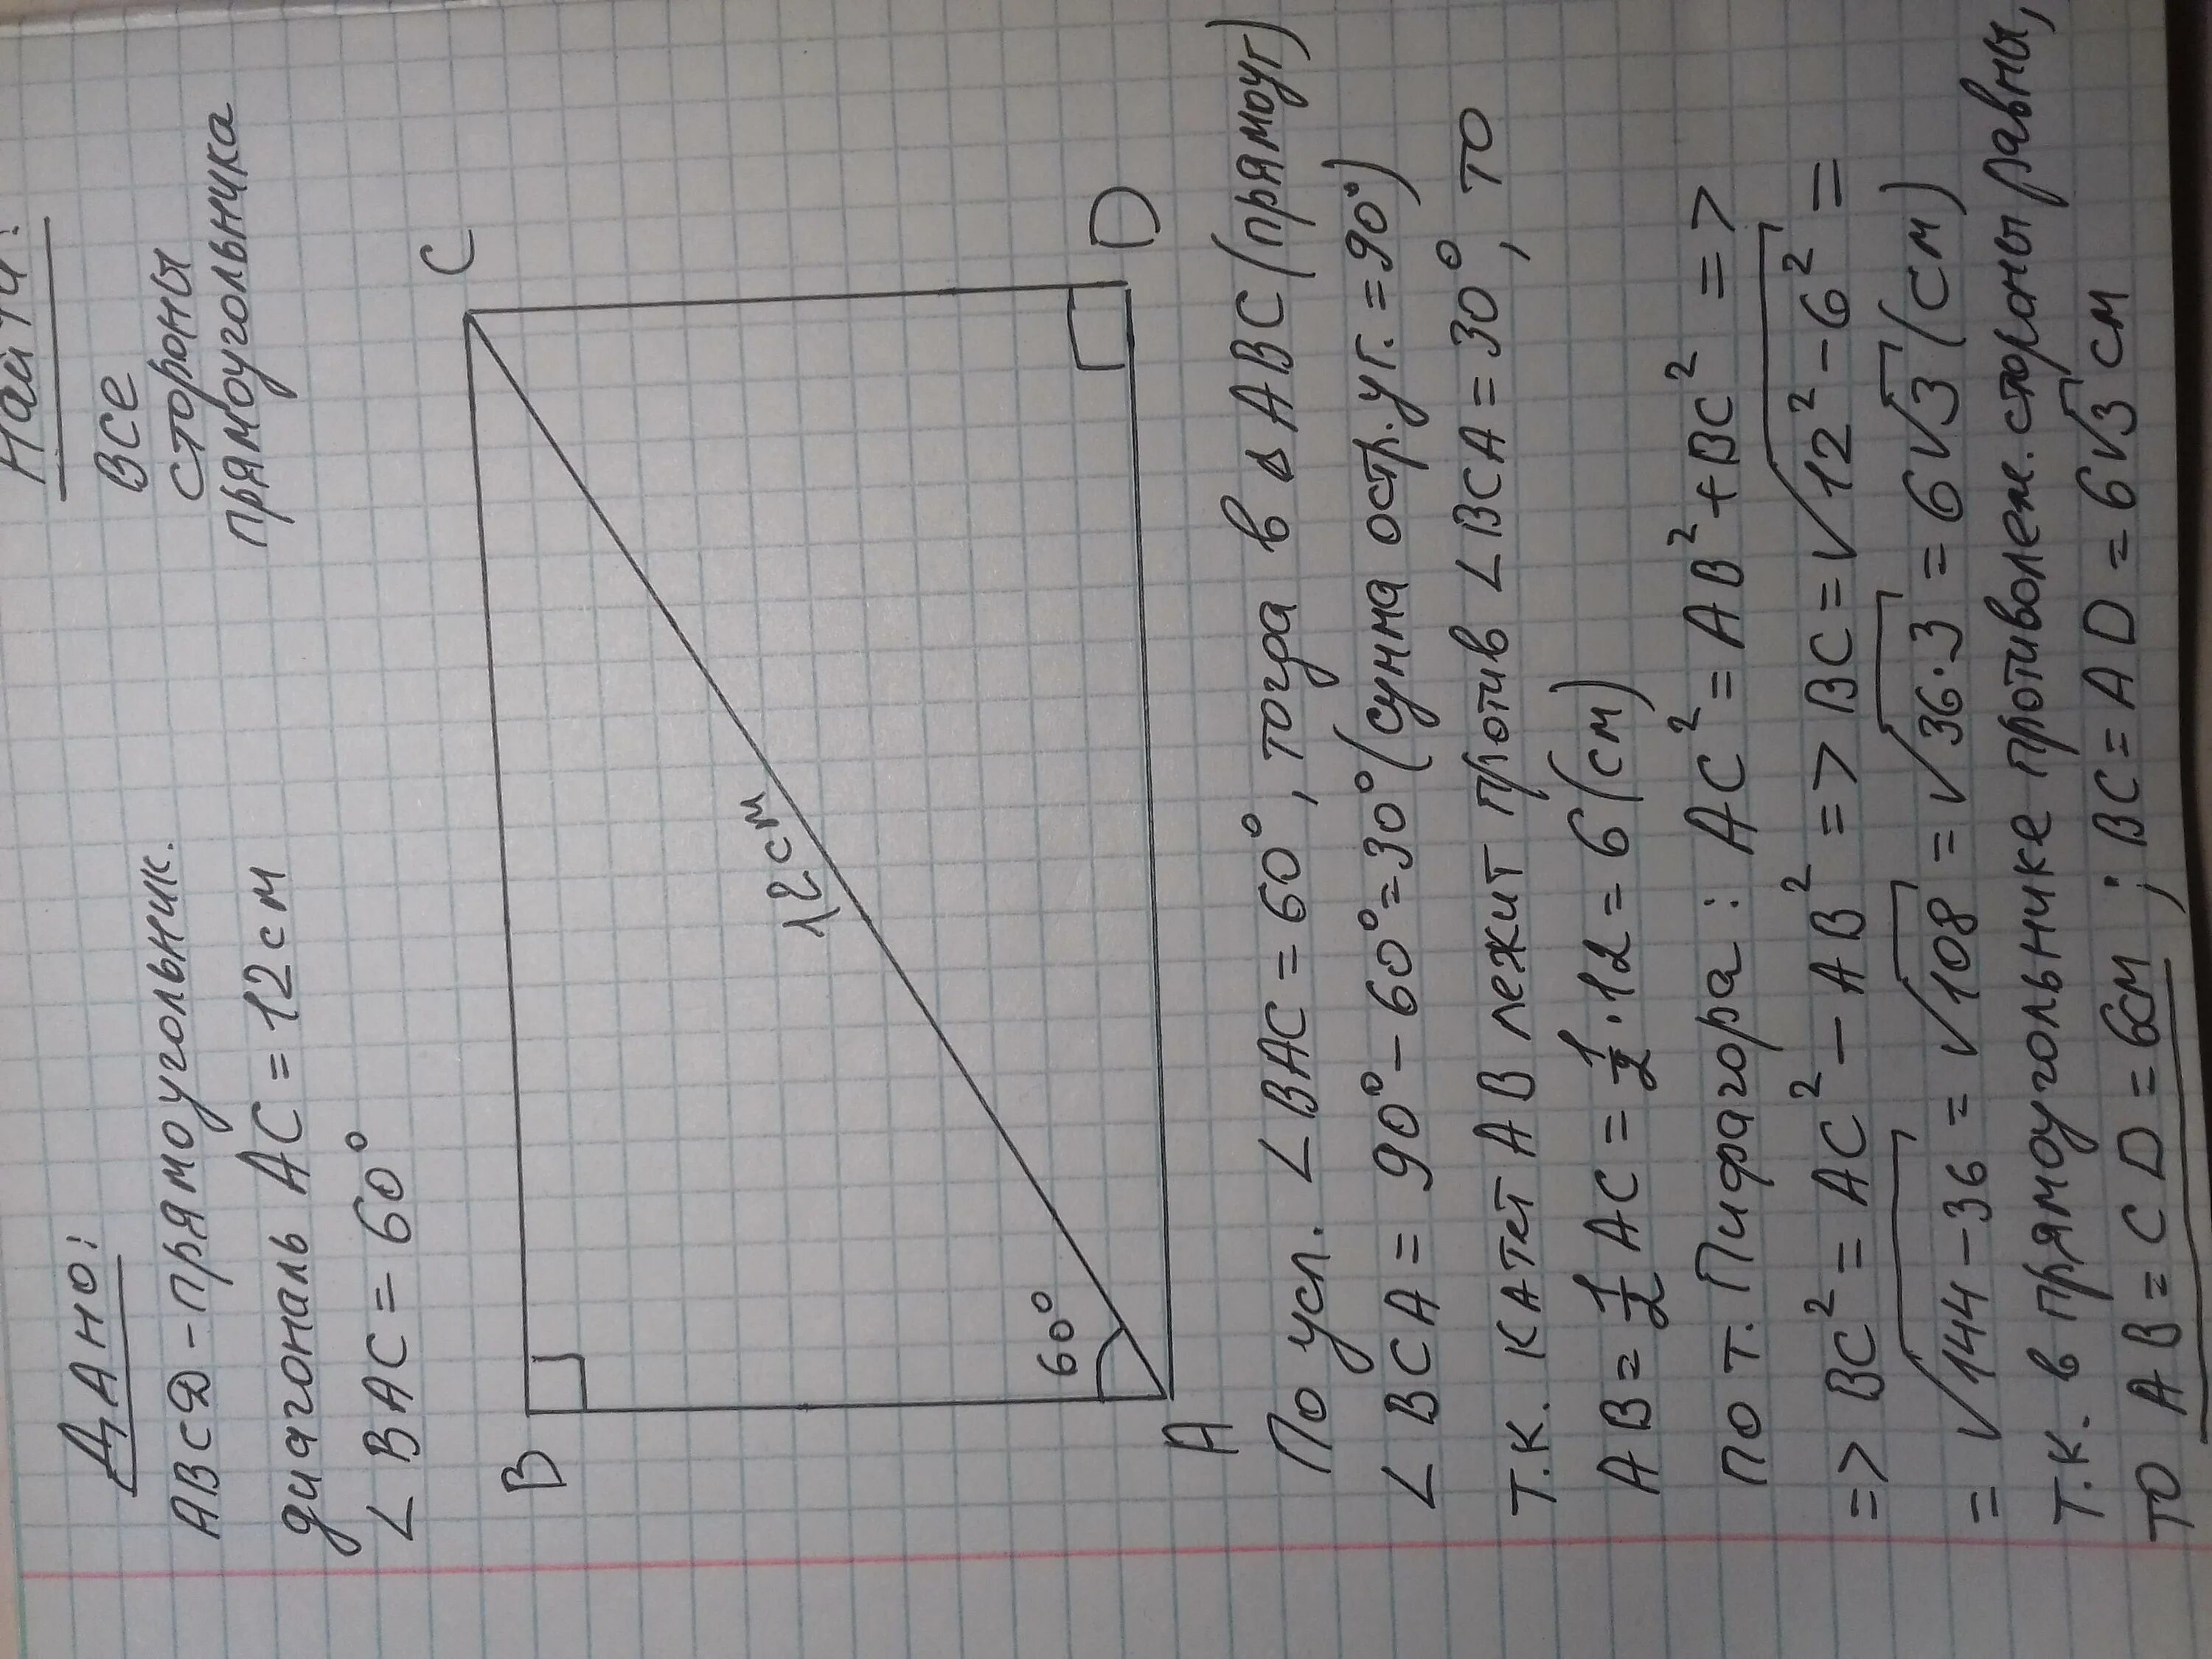 Дано:
АВСД-прямоугольник.
диагональ АС=12см
∠ВАС=60°
Найти:
все
стороны
прямоугольника
B
C
12см
60°
A
D
По усл. ∠ВАС=60°, тогда в △АВС(прямоуг)
∠ВСА=90°-60°=30°(сумма остр.уг.=90°)
Т.к. катет АВ лежит против ∠ВСА=30°, то
АВ=1/2АС=1/2·12=6(см)
По т. Пифагора: АС²=АВ²+ВС² =>
=> ВС²=АС²-АВ² => ВС=√12²-6² =
=√144-36=√108=√36·3=6√3(см)
Т.к. в прямоугольнике противолеж.стороны равны,
то АВ=CD=6см; ВС=AD=6√3см